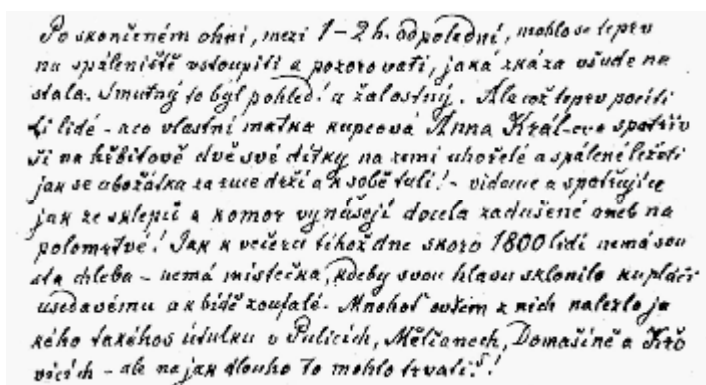 Po skončeném ohni, mezi 1-2 h. odpolední, mohlo se teprv
na spáleniště vstoupiti a pozorovati, jaká zkáza všude na
stala. Smutný to byl pohled! a žalostný. Ale což teprv pocíti
ti lidé - neo vlastní matka kupcová Anna Král-ova spatřiv
ši na hřbitově dvě své dítky na zemi uhořelé a spálené ležeti
jak se ubožátka za ruce drží a k sobě tulí! - vidouce a spatřujíce
jak ze sklepů a komor vynášejí docela zadušené aneb na
polomrtvé! Jak k večeru téhož dne skoro 1800 lidí nemá sou
sta chleba - nemá místečka, kdeby svou hlavu sklonilo ku pláči
usedavému a k bídě zoufalé. Mnohof ovšem z nich nalezlo ja
kého takéhos útulku v Pulicích, Mělčanech, Domašíně a Křo
vicích - ale na jak dlouho to mohlo trvati?!